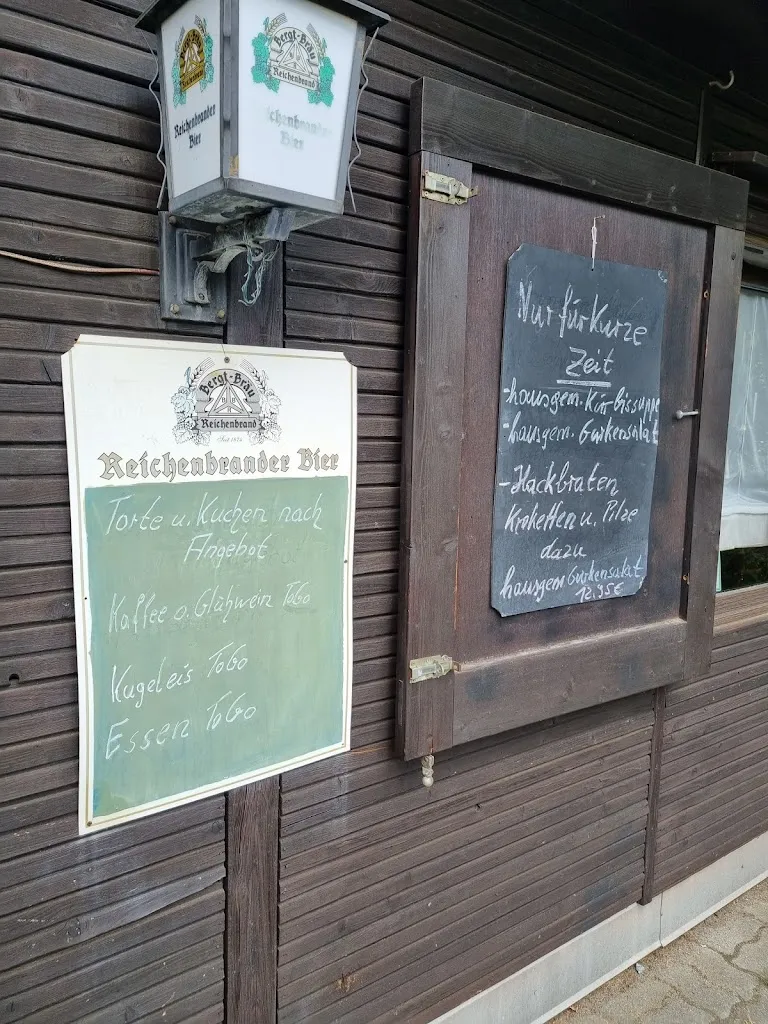 Bergt-Bräu
Reichenbrand
Reichenbrander
Bier
Bergt-Bräu
Reichenbrand
Seit 1874
Reichenbrander Bier
Torte u. Kuchen nach
Angebot
Kaffee o. Glühwein ToGo
Kugeleis ToGo
Essen ToGo
Nur für Kurze
Zeit
-hausgem. Kürbissuppe
-hausgem. Gurkensalat
-Hackbraten
Kroketten u. Pilze
dazu
hausgem Gurkensalat
12,95€